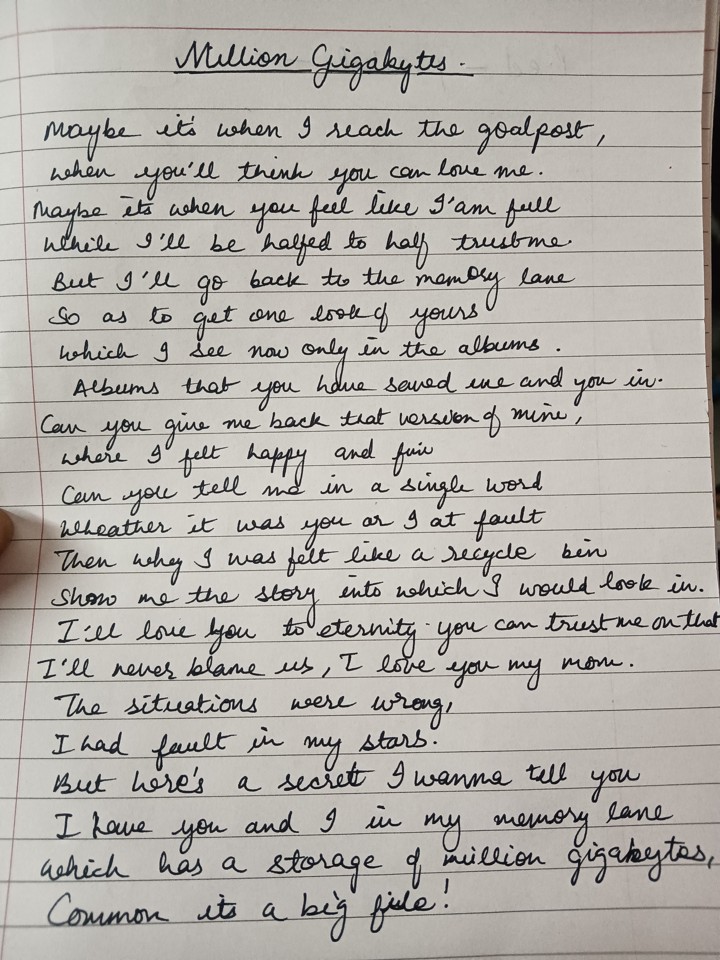 Million Gigabytes.
Maybe it's when I reach the goalpost,
when you'll think you can love me.
Maybe its when you feel like I'am full
While I'll be halfed to half trust me.
But I'll go back to the memory lane
So as to get one look of yours
which I see now only in the albums.
Albums that you have saved me and you in.
Can you give me back that version of mine,
where I felt happy and fun
Can you tell me in a single word
Wheather it was you or I at fault
Then whey I was felt like a recycle bin
Show me the story into which I would look in.
I'll love you to eternity you can trust me on that
I'll never blame us, I love you my mom.
The situations were wrong,
I had fault in my stars.
But here's a secrett I wanna tell you
I have you and I in my memory lane
which has a storage of million gigabytes,
Common its a big file!